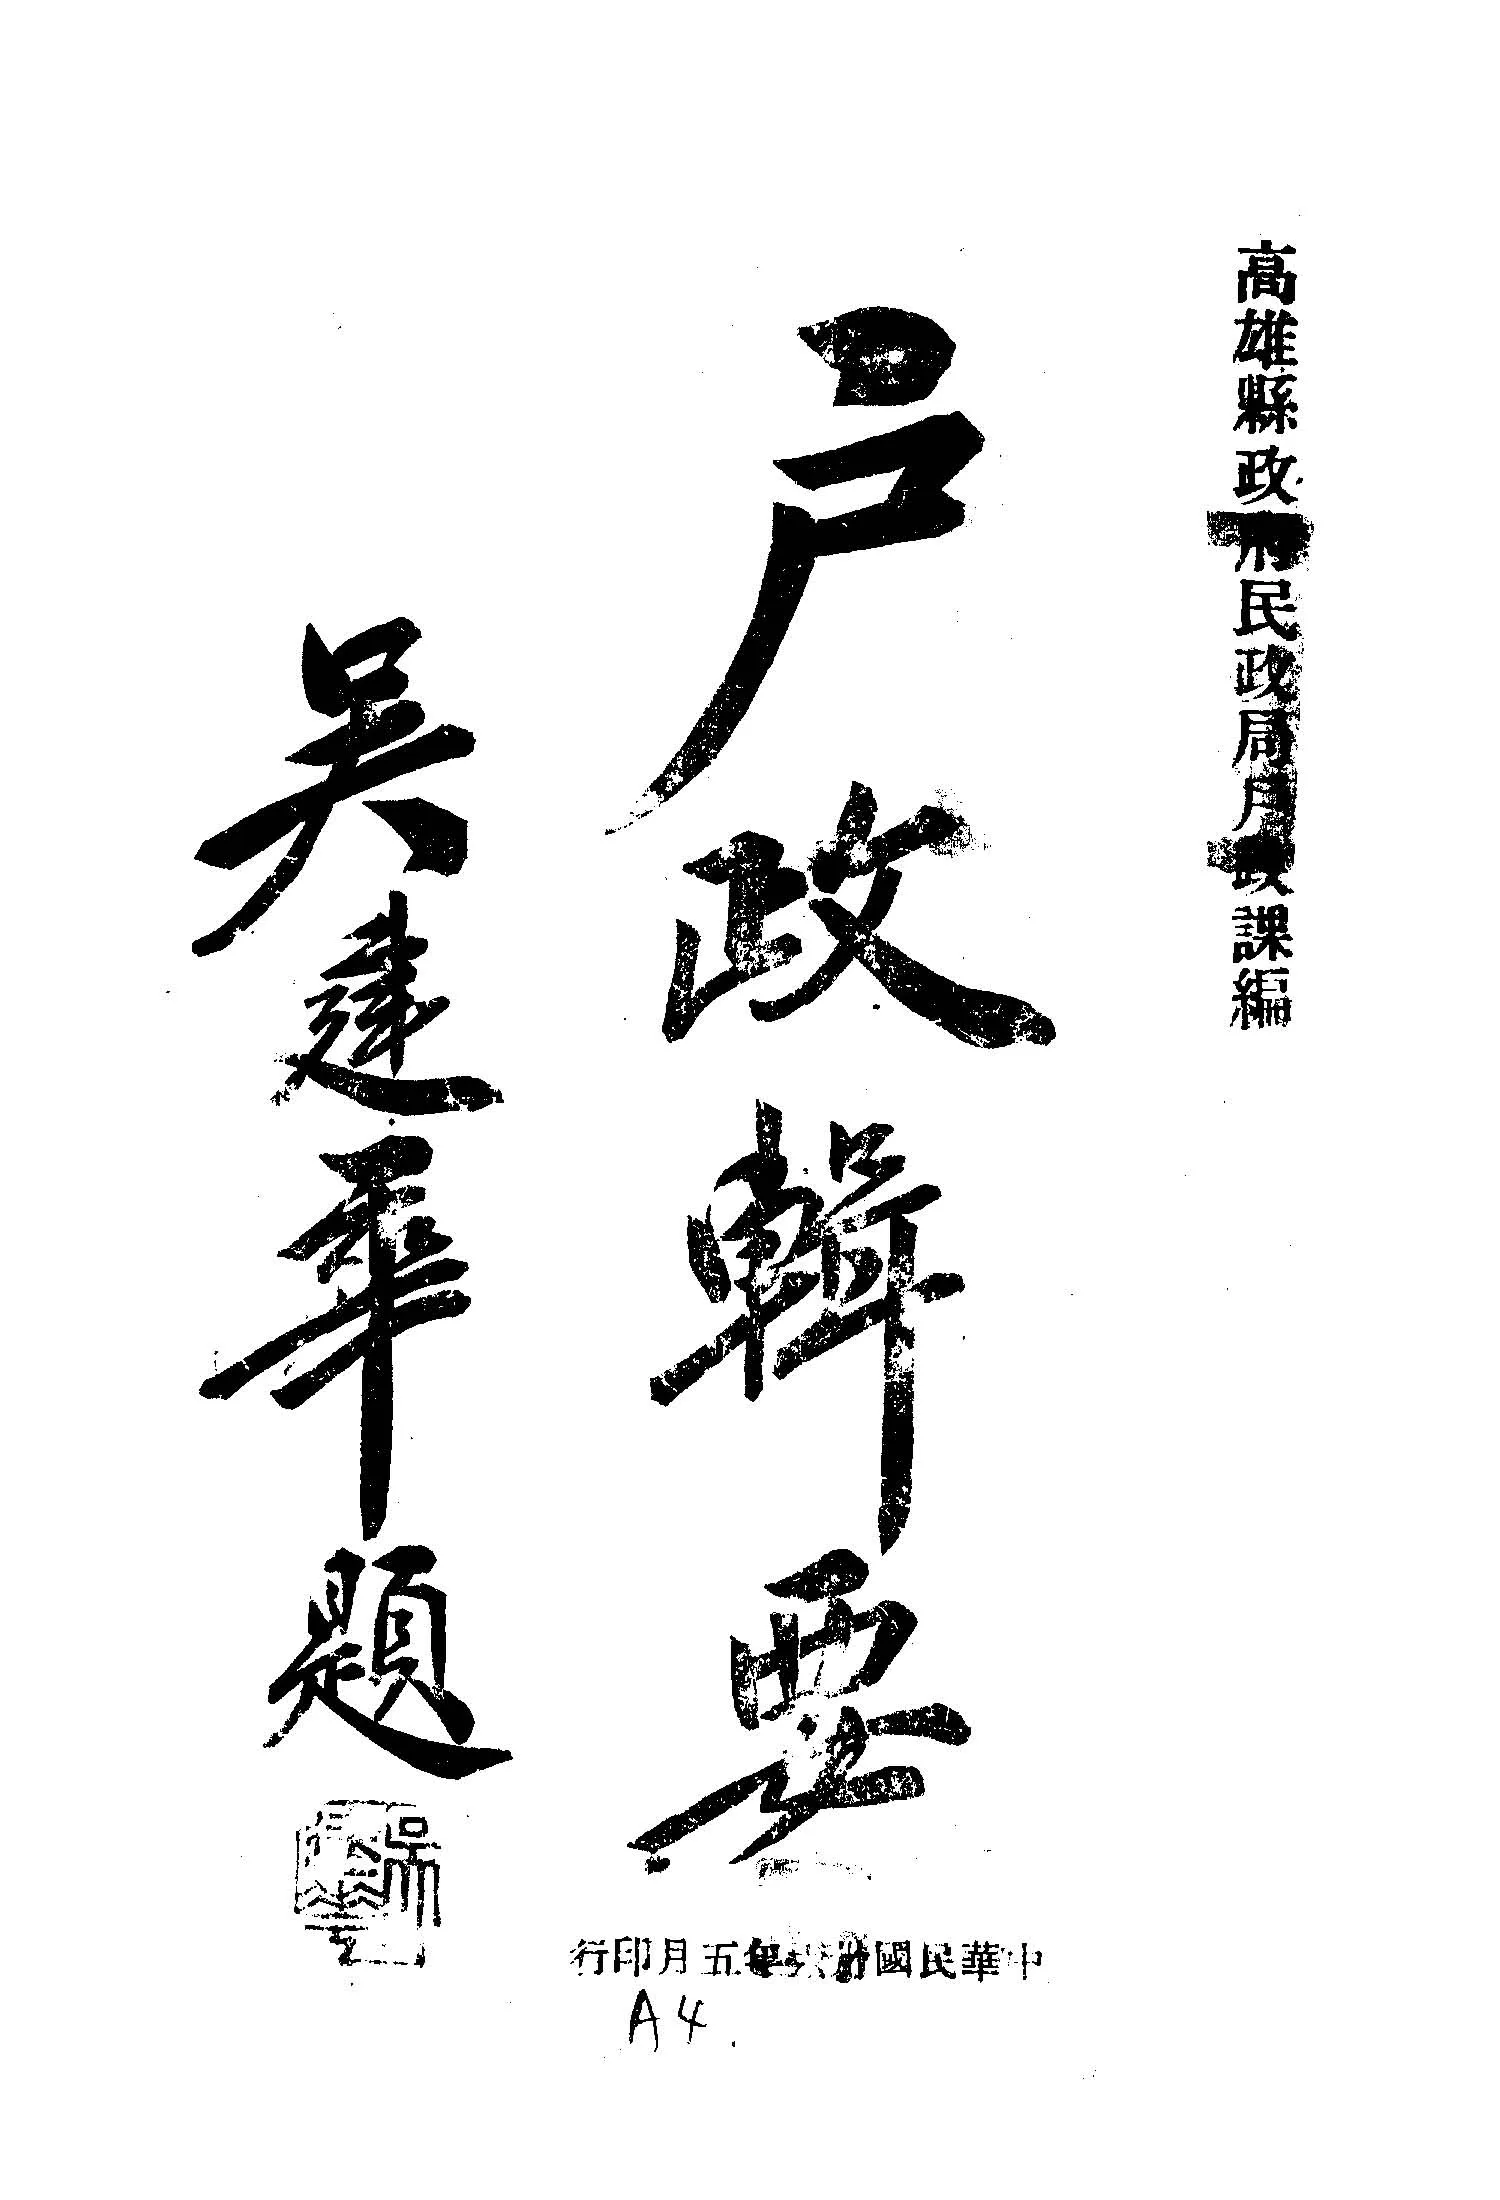 高雄縣政府民政局戶政課編
戶政輯要
吳建華題
中華民國卅六年五月印行
A4.